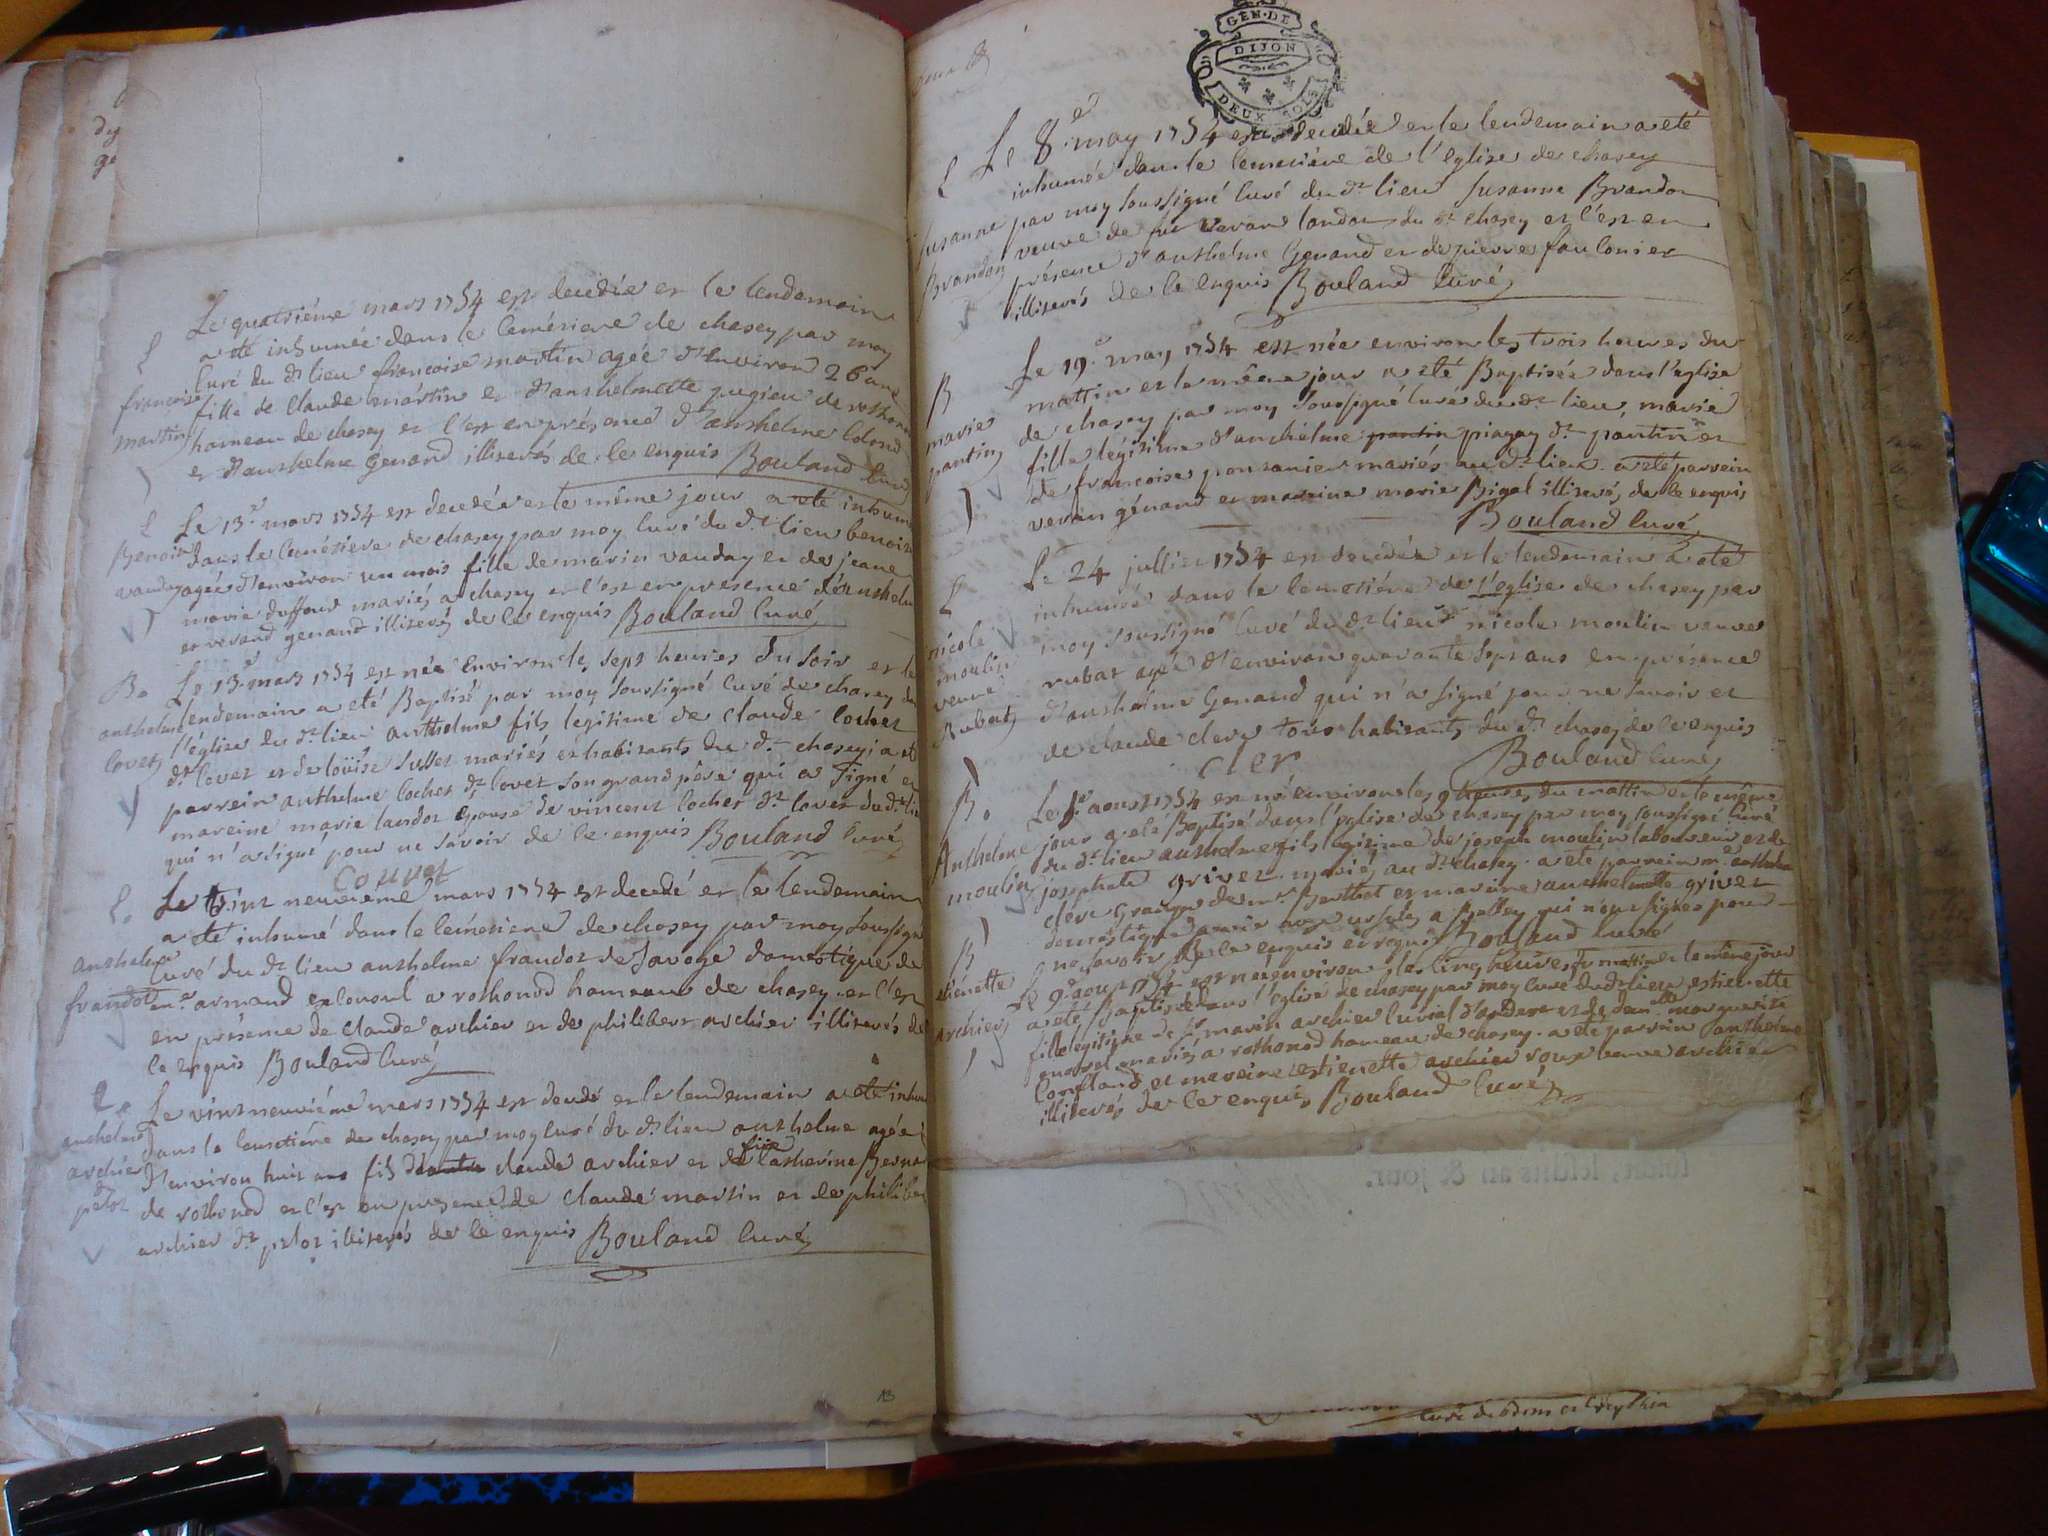 Le quatriéme mars 1754 est decedée et le lendemain
a eté inhumée dans le cemétiere de chasey par moy
curé du dt lieu francoise martin agée d'environ 26 ans
fille de claude martin et d'anthelmette pugieu de rothonod
hameau de chasey et c'est en présence d'anthelme
et d'anthelme genand illiterés de ce enquis Bouland curé
francoise
martin
Le 13e mars 1754 est decedée et le même jour a eté inhumée
dans le cemétiere de chasey par moy curé du dt lieu benoite
agée d'environ un mois fille de marin vauday et de jeane
marie duffour mariés a chasey et c'est en présence d'anthelme
et verand genand illiterés de ce enquis Bouland curé
Benoite
vauday
B. Le 13e mars 1754 est née environ les sept heures du soir et le
lendemain a eté Baptisé par moy soussigné curé de chasey dans
l'église du dt lieu anthelme fils legitime de claude cochet
dt lovet et de loüise sutter mariés et habitants du dt chasey; a eté
parrein anthelme cochet dt lovet son grand pére qui a signé et
mareine marie landot epouse de vincent cochet dt lovet du dt lieu
qui n'a signé pour ne savoir de ce enquis Bouland curé
anthelme
lovet
couvet
Le vint neuviéme mars 1754 est decedé et le lendemain
a eté inhumé dans le cemétiere de chasey par moy soussigné
curé du dt lieu anthelme frandot de savoye domestique de
mr armand exconsul a rothonod hameau de chasey et c'est
en présence de claude archier et de philibert archier illiterés de
ce enquis Bouland curé
anthelme
frandot
Le vint neuviéme mars 1754 est decedé et le lendemain a eté inhumé
dans le cemetiére de chasey par moy curé du dt lieu anthelme agée
d'environ huit ans fils claude archier et de catherine
de rothonod et c'est en presence de claude martin et de philibert
archier dt pelot illiterés de ce enquis Bouland curé
anthelme
archier
pelot
13
GEN. DE
DIJON
DEUX SOLS
Le 8e may 1754 est decedée et le lendemain a eté
inhumée dans le cemetiére de l'eglise de chasey
par moy soussigné curé du dt lieu susanne Brandon
veuve de feu veran landot du dt chasey et c'est en
présence d'anthelme Genand et de pierre faulonier
illiterés de ce enquis Bouland curé
susanne
Brandon
Le 19e may 1754 est née environ les trois heures du
mattin et le même jour a eté Baptisée dans l'église
de chasey par moy soussigné curé du dt lieu, marie
fille légitime d'anthélme pantin piagay dt pantin et
de francoise ponsanier mariés au dt lieu. a eté parrein
veran génand et mareine marie Bigal illiterés de ce enquis
Bouland curé
B
marie
pantin
Le 24 jullie 1754 est decedée et le lendemain a eté
inhumée dans le cemetiére de l'eglise de chasey par
moy soussigné curé du dt lieu nicole moulin veuve
rubat agée d'environ quarante sept ans en présence
d'anthelme Genand qui n'a signé pour ne savoir et
de claude clerc tous habitants du dt chasey de ce enquis
cler
Bouland curé
nicole
moulin
veuve
Rubat
B. Le 1e aoust 1754 est né environ les 9 heures du mattin et le même
jour a eté Baptisé dans l'eglise de chasey par moy soussigné curé
du dt lieu anthelme fils legitime de joseph moulin laboureur et de
josephate grivet mariés au dt chasey. a eté parrein mr anthelme
cléve granger de mr Berthet et mareine anthelmette grivet
domestique a Belley qui n'ont signés pour
ne savoir de ce enquis et requis Bouland curé
Anthelme
moulin
B
Le 9e aoust 1754 est née environ les cinq heures du mattin et le même jour
a eté Baptisée dans l'église de chasey par moy curé du dt lieu estienette
fille legitime de sr marin archier curial d'andert et de demlle marguerite
mariés a rothonod hameau de chasey. a eté parrein anthelme
Confland et mareine estienette archier roux veuve archier
illiterés de ce enquis Bouland curé
etienette
Archier
curé d'oderns et Creythin